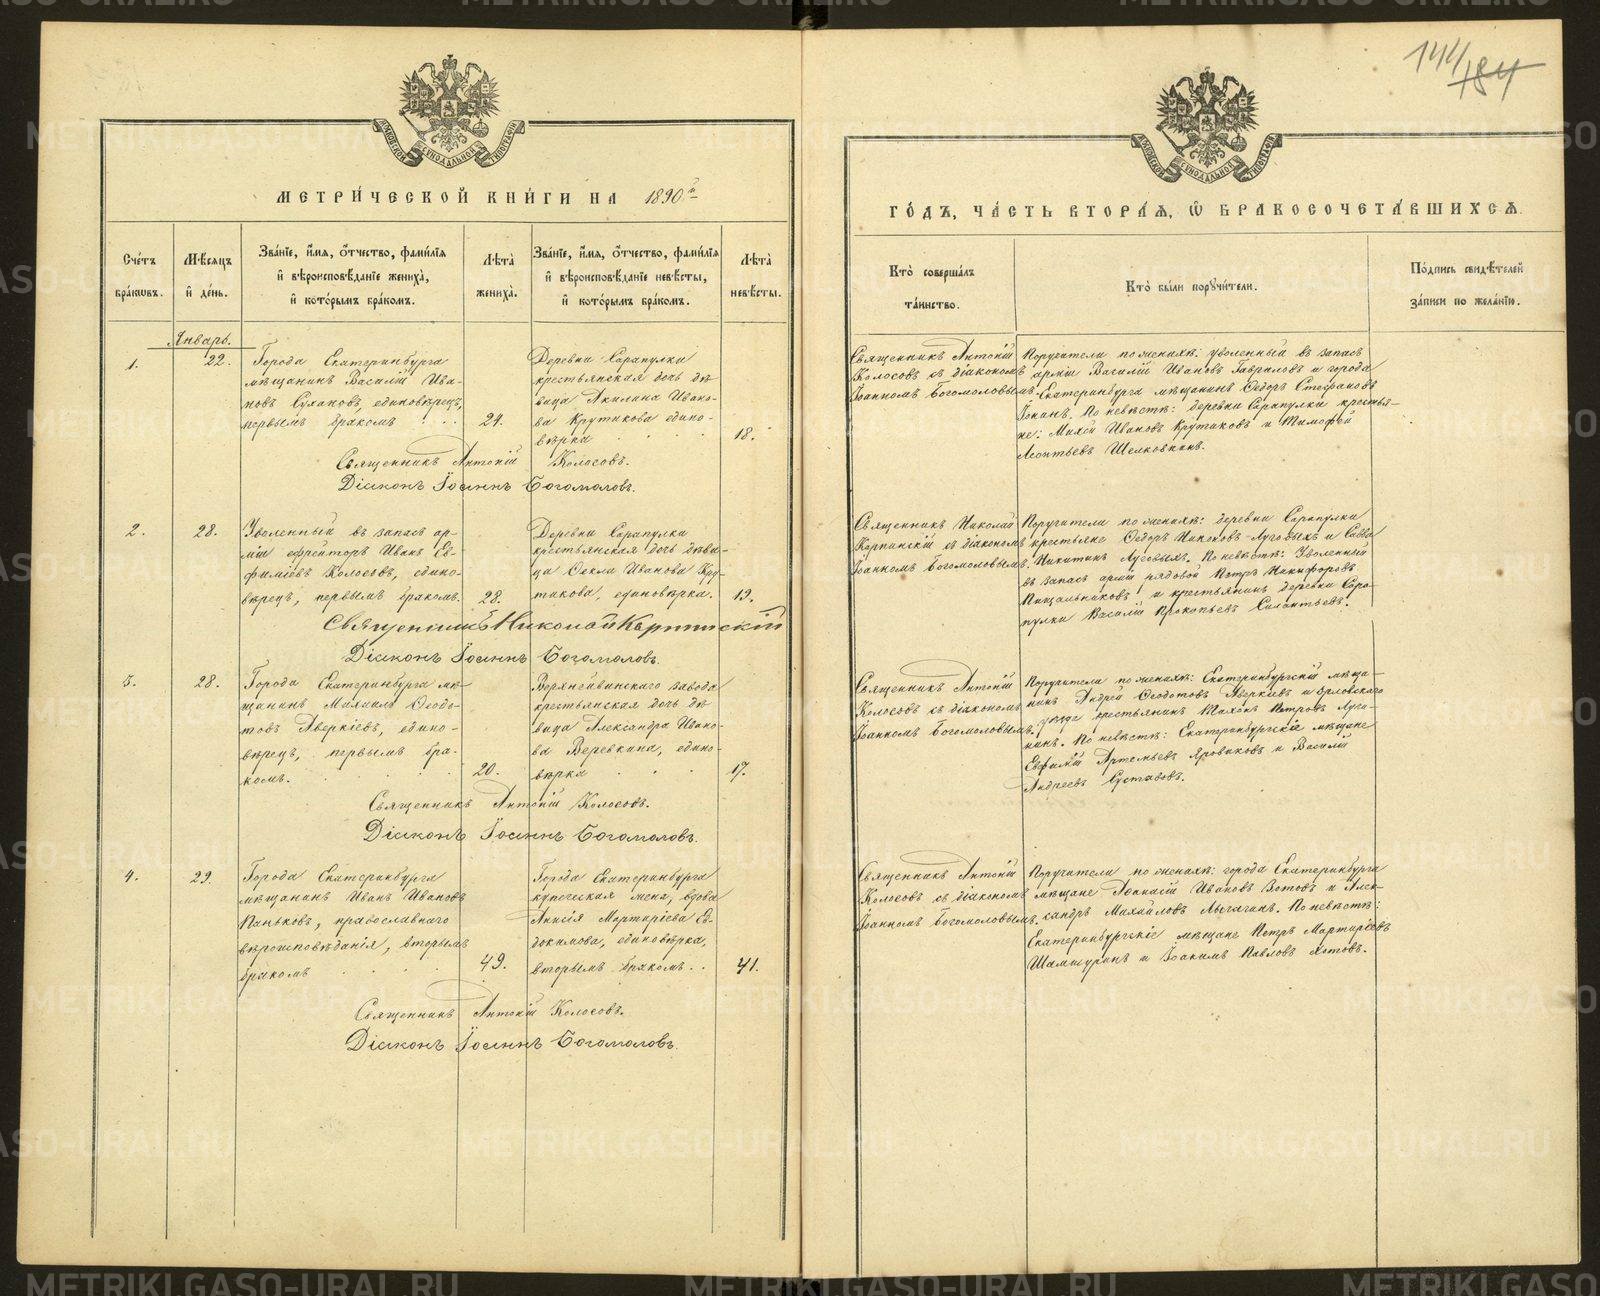 144
184
МОСКОВСКОЙ СѴНОДАЛЬНОЙ ТИПОГРАФІИ
МЕТРИ́ЧЕСКОЙ КНИ́ГИ НА 1890й
Сче́тъ бра́ковъ.
Мѣ́сяцъ и҆ де́нь.
Зва́нїе, и҆́мя, ѻ҆́тчество, фамилїя
и҆ вѣроисповѣ́данїе жениха̀,
и҆ кото́рымъ бра́комъ.
Лѣта̀
жениха̀.
Зва́нїе, и҆́мя, ѻ҆́тчество, фамилїя
и҆ вѣроисповѣ́данїе невѣ́сты,
и҆ кото́рымъ бра́комъ.
Лѣта̀
невѣ́сты.
Январь.
1.
22.
Города Екатеринбурга
мѣщанинъ Василій Ива-
новъ Сухановъ, единовѣрецъ,
первымъ бракомъ
24.
Деревни Сарапулки
крестьянская дочь дѣ-
вица Акилина Ивано-
ва Крутикова едино-
вѣрка
18.
Священникъ Антоній Колосовъ.
Діаконъ Іоаннъ Богомоловъ.
2.
28.
Уволенный въ запасъ ар-
міи ефрейторъ Иванъ Ев-
фиміевъ Колосовъ, едино-
вѣрецъ, первымъ бракомъ.
28.
Деревни Сарапулки
крестьянская дочь дѣви-
ца Ѳекла Иванова Кру-
тикова, единовѣрка.
19.
Священникъ Николай Карпинскій
Діаконъ Іоаннъ Богомоловъ.
3.
28.
Города Екатеринбурга мѣ-
щанинъ Михаилъ Ѳеодо-
товъ Аверкіевъ, едино-
вѣрецъ, первымъ бра-
комъ.
20.
Верхнейвинскаго завода
крестьянская дочь дѣ-
вица Александра Ивано-
ва Веревкина, едино-
вѣрка
17.
Священникъ Антоній Колосовъ.
Діаконъ Іоаннъ Богомоловъ.
4.
29.
Города Екатеринбурга
мѣщанинъ Иванъ Ивановъ
Паньковъ, православнаго
вѣроисповѣданія, вторымъ
бракомъ
49.
Города Екатеринбурга
купеческая жена, вдова
Анисія Мартиріева Ев-
докимова, единовѣрка,
вторымъ бракомъ.
41.
Священникъ Антоній Колосовъ.
Діаконъ Іоаннъ Богомоловъ.
МОСКОВСКОЙ СѴНОДАЛЬНОЙ ТИПОГРАФІИ
ГО́ДЪ, ЧА́СТЬ ВТОРА́Я, Ѽ БРАКОСОЧЕТА́ВШИХСЯ.
Кто̀ соверша́лъ
та́инство.
Кто̀ бы́ли порꙋчи́тели.
По́дпись свидѣ́телей
за́писи по жела́нїю.
Священникъ Антоній
Колосовъ съ діакономъ
Іоанномъ Богомоловымъ.
Поручители по женихѣ: уволенный въ запасъ
арміи Василій Ивановъ Гавриловъ и города
Екатеринбурга мѣщанинъ Ѳедоръ Стефановъ
По невѣстѣ: деревни Сарапулки крестья-
не: Ивановъ Крутиковъ и Тимофей
Леонтьевъ Шелковкинъ.
Священникъ Николай
Карпинскій съ діакономъ
Іоанномъ Богомоловымъ.
Поручители по женихѣ: деревни Сарапулки
крестьяне Ѳедоръ Луговыхъ и Савва
Никитинъ Луговыхъ. По невѣстѣ: Уволенный
въ запасъ арміи рядовой Петръ Никифоровъ
Пищальниковъ и крестьянинъ деревни Сара-
пулки Василій Прокопьевъ Силантьевъ.
Священникъ Антоній
Колосовъ съ діакономъ
Іоанномъ Богомоловымъ.
Поручители по женихѣ: Екатеринбургскій мѣща-
нинъ Андрей Ѳеодотовъ Аверкіевъ и Орловскаго
уѣзда крестьянинъ Тихонъ Петровъ Луга-
нинъ. По невѣстѣ: Екатеринбургскіе мѣщане
Евфимій Артемьевъ Яровиковъ и Василій
Андреевъ Суставовъ.
Священникъ Антоній
Колосовъ съ діакономъ
Іоанномъ Богомоловымъ.
Поручители по женихѣ: города Екатеринбурга
мѣщане Аѳанасій Ивановъ Зотовъ и Алек-
сандръ Михайловъ Лычагинъ. По невѣстѣ:
Екатеринбургскіе мѣщане Петръ Мартиріевъ
Шамшуринъ и Іоакимъ Павловъ
METRIKI.GASO-URAL.RU